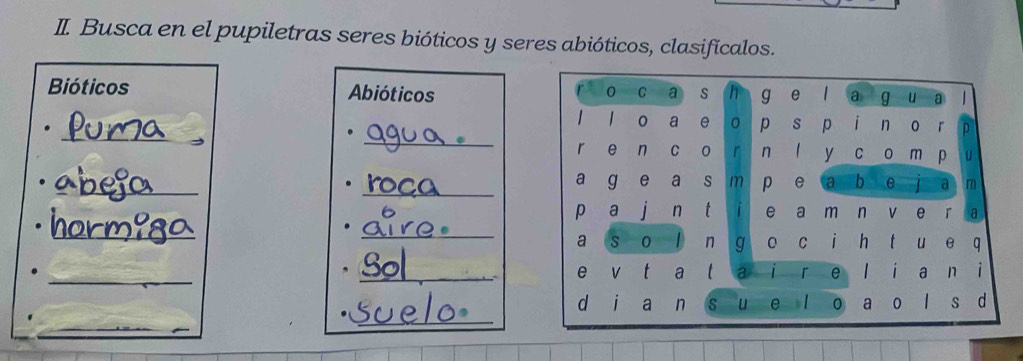 II. Busca en el pupiletras seres bióticos y seres abióticos, clasifícalos.
Bióticos
• Puma
• abeja
• hormiga
•
•
Abióticos
• agua.
• roca
• aire.
• Sol
• Suelo.
r o c a s h g e l a g u a l
l l o a e o p s p i n o r p
r e n c o r n l y c o m p u
a g e a s m p e a b e j a m
p a j n t i e a m n v e r a
a s o l n g o c i h t u e q
e v t a t a i r e l i a n i
d i a n s u e l o a o l s d